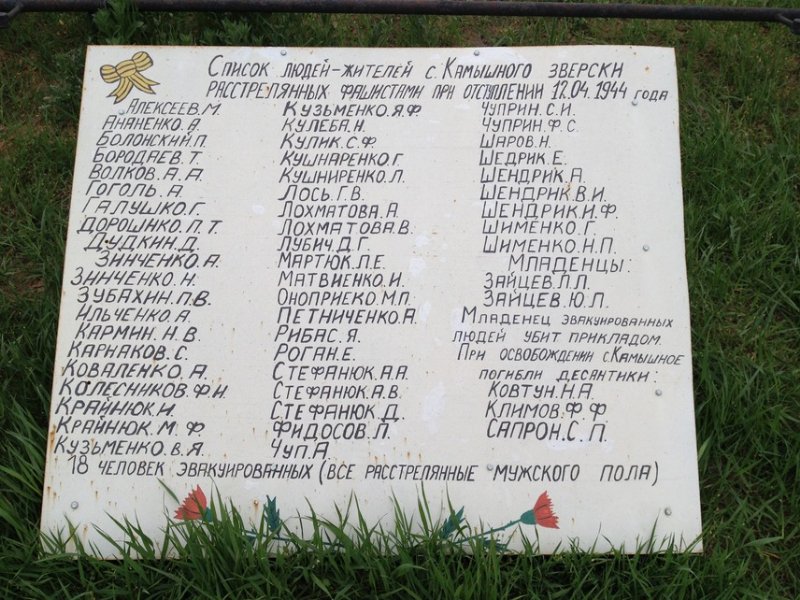 Список людей-жителей с. Камышного зверски
расстрелянных фашистами при отступлении 12.04.1944 года
Алексеев. М.
Ананенко. А.
Болонский. П.
Бородаев. Т.
Волков. А. А.
Гоголь. А.
Галушко. Г.
Дорошнко. П. Т.
Дудкин. Д.
Зинченко. А.
Зинченко. Н.
Зубахин. П. В.
Ильченко. А.
Кармин. Н. В.
Карнаков. С.
Коваленко. А.
Колесников. Ф. И.
Крайнюк. И.
Крайнюк. М. Ф.
Кузьменко. В. Я.
Кузьменко. Я. Ф.
Кулеба. Н.
Кулик. С. Ф.
Кушнаренко. Г.
Кушниренко. Л.
Лось. Г. В.
Лохматова. А.
Лохматова. В.
Лубич. Д. Г.
Мартюк. Л. Е.
Матвиенко. И.
Оноприеко. М. П.
Петниченко. А.
Рибас. Я.
Роган. Е.
Стефанюк. А. А.
Стефанюк. А. В.
Стефанюк. Д.
Фидосов. Л.
Чуп. А
Чуприн. С. И.
Чуприн. Ф. С.
Шаров. Н.
Шедрик. Е.
Шендрик. А.
Шендрик. В. И.
Шендрик. И. Ф.
Шименко. Г.
Шименко. Н. П.
Младенцы:
Зайцев. Л. Л.
Зайцев. Ю. Л.
Младенец эвакуированных
людей убит прикладом.
При освобождении с. Камышное
погибли десантики:
Ковтун. Н. А.
Климов. Ф. Ф
Сапрон. С. П.
18 человек эвакуированных (все расстрелянные мужского пола)